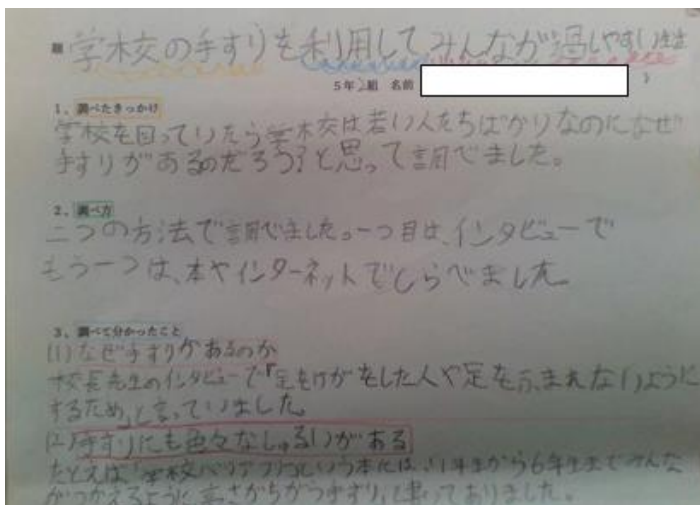 題 学校の手すりを利用してみんなが過しやすい生活
5年2組 名前
1、調べたきっかけ
学校を回っていたら学校は若い人たちばかりなのになぜ
手すりがあるのだろう?と思って調べました。
2、調べ方
二つの方法で調べました。一つ目は、インタビューで
もう一つは、本やインターネットでしらべました。
3、調べて分かったこと
(1)なぜ手すりがあるのか
校長先生のインタビューで「足をけがをした人や足をふまれないように
するため」と言っていました。
(2)手すりにも色々なしゅるいがある
たとえば「学校バリアフリーという本には、1年生から6年生までみんな
がつかえるように高さがちがう手すり」と書いてありました。